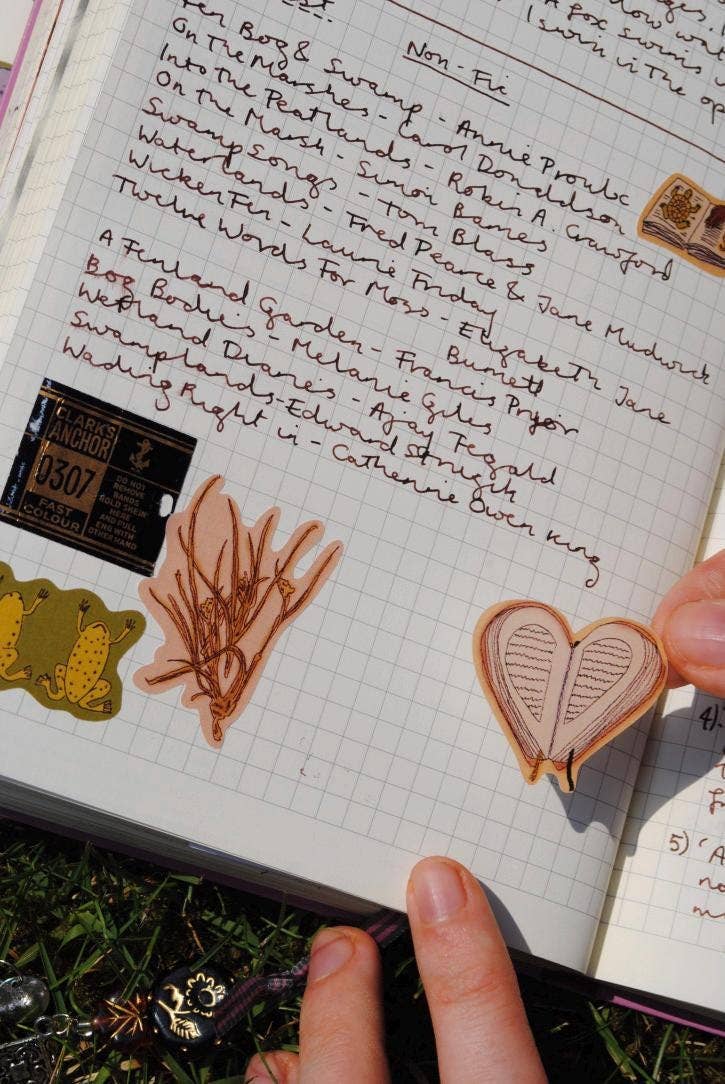 A fox swims
I swim in the op
Non-Fic
Fen Bog & Swamp - Annie Proulx
On The Marshes - Carol Donaldson
Into the Peatlands - Robin A. Crawford
On the Marsh - Simon Barnes
Swamp Songs - Tom Blass
Waterlands - Fred Pearce & Jane Madgwick
Wicken Fen - Laurie Friday
Twelve Words For Moss - Elizabeth Jane
Burnett
A Fenland Garden - Francis Pryor
Bog Bodies - Melanie Giles
Wetland Diaries - Ajay Tegala
Swamplands - Edward Struzik
Wading Right in - Catherine Owen King
CLARK'S
ANCHOR
0307
FAST
COLOUR
DO NOT
REMOVE
BANDS
HOLD SKEIN
HERE
AND PULL
END WITH
OTHER HAND
4)
5) 'A